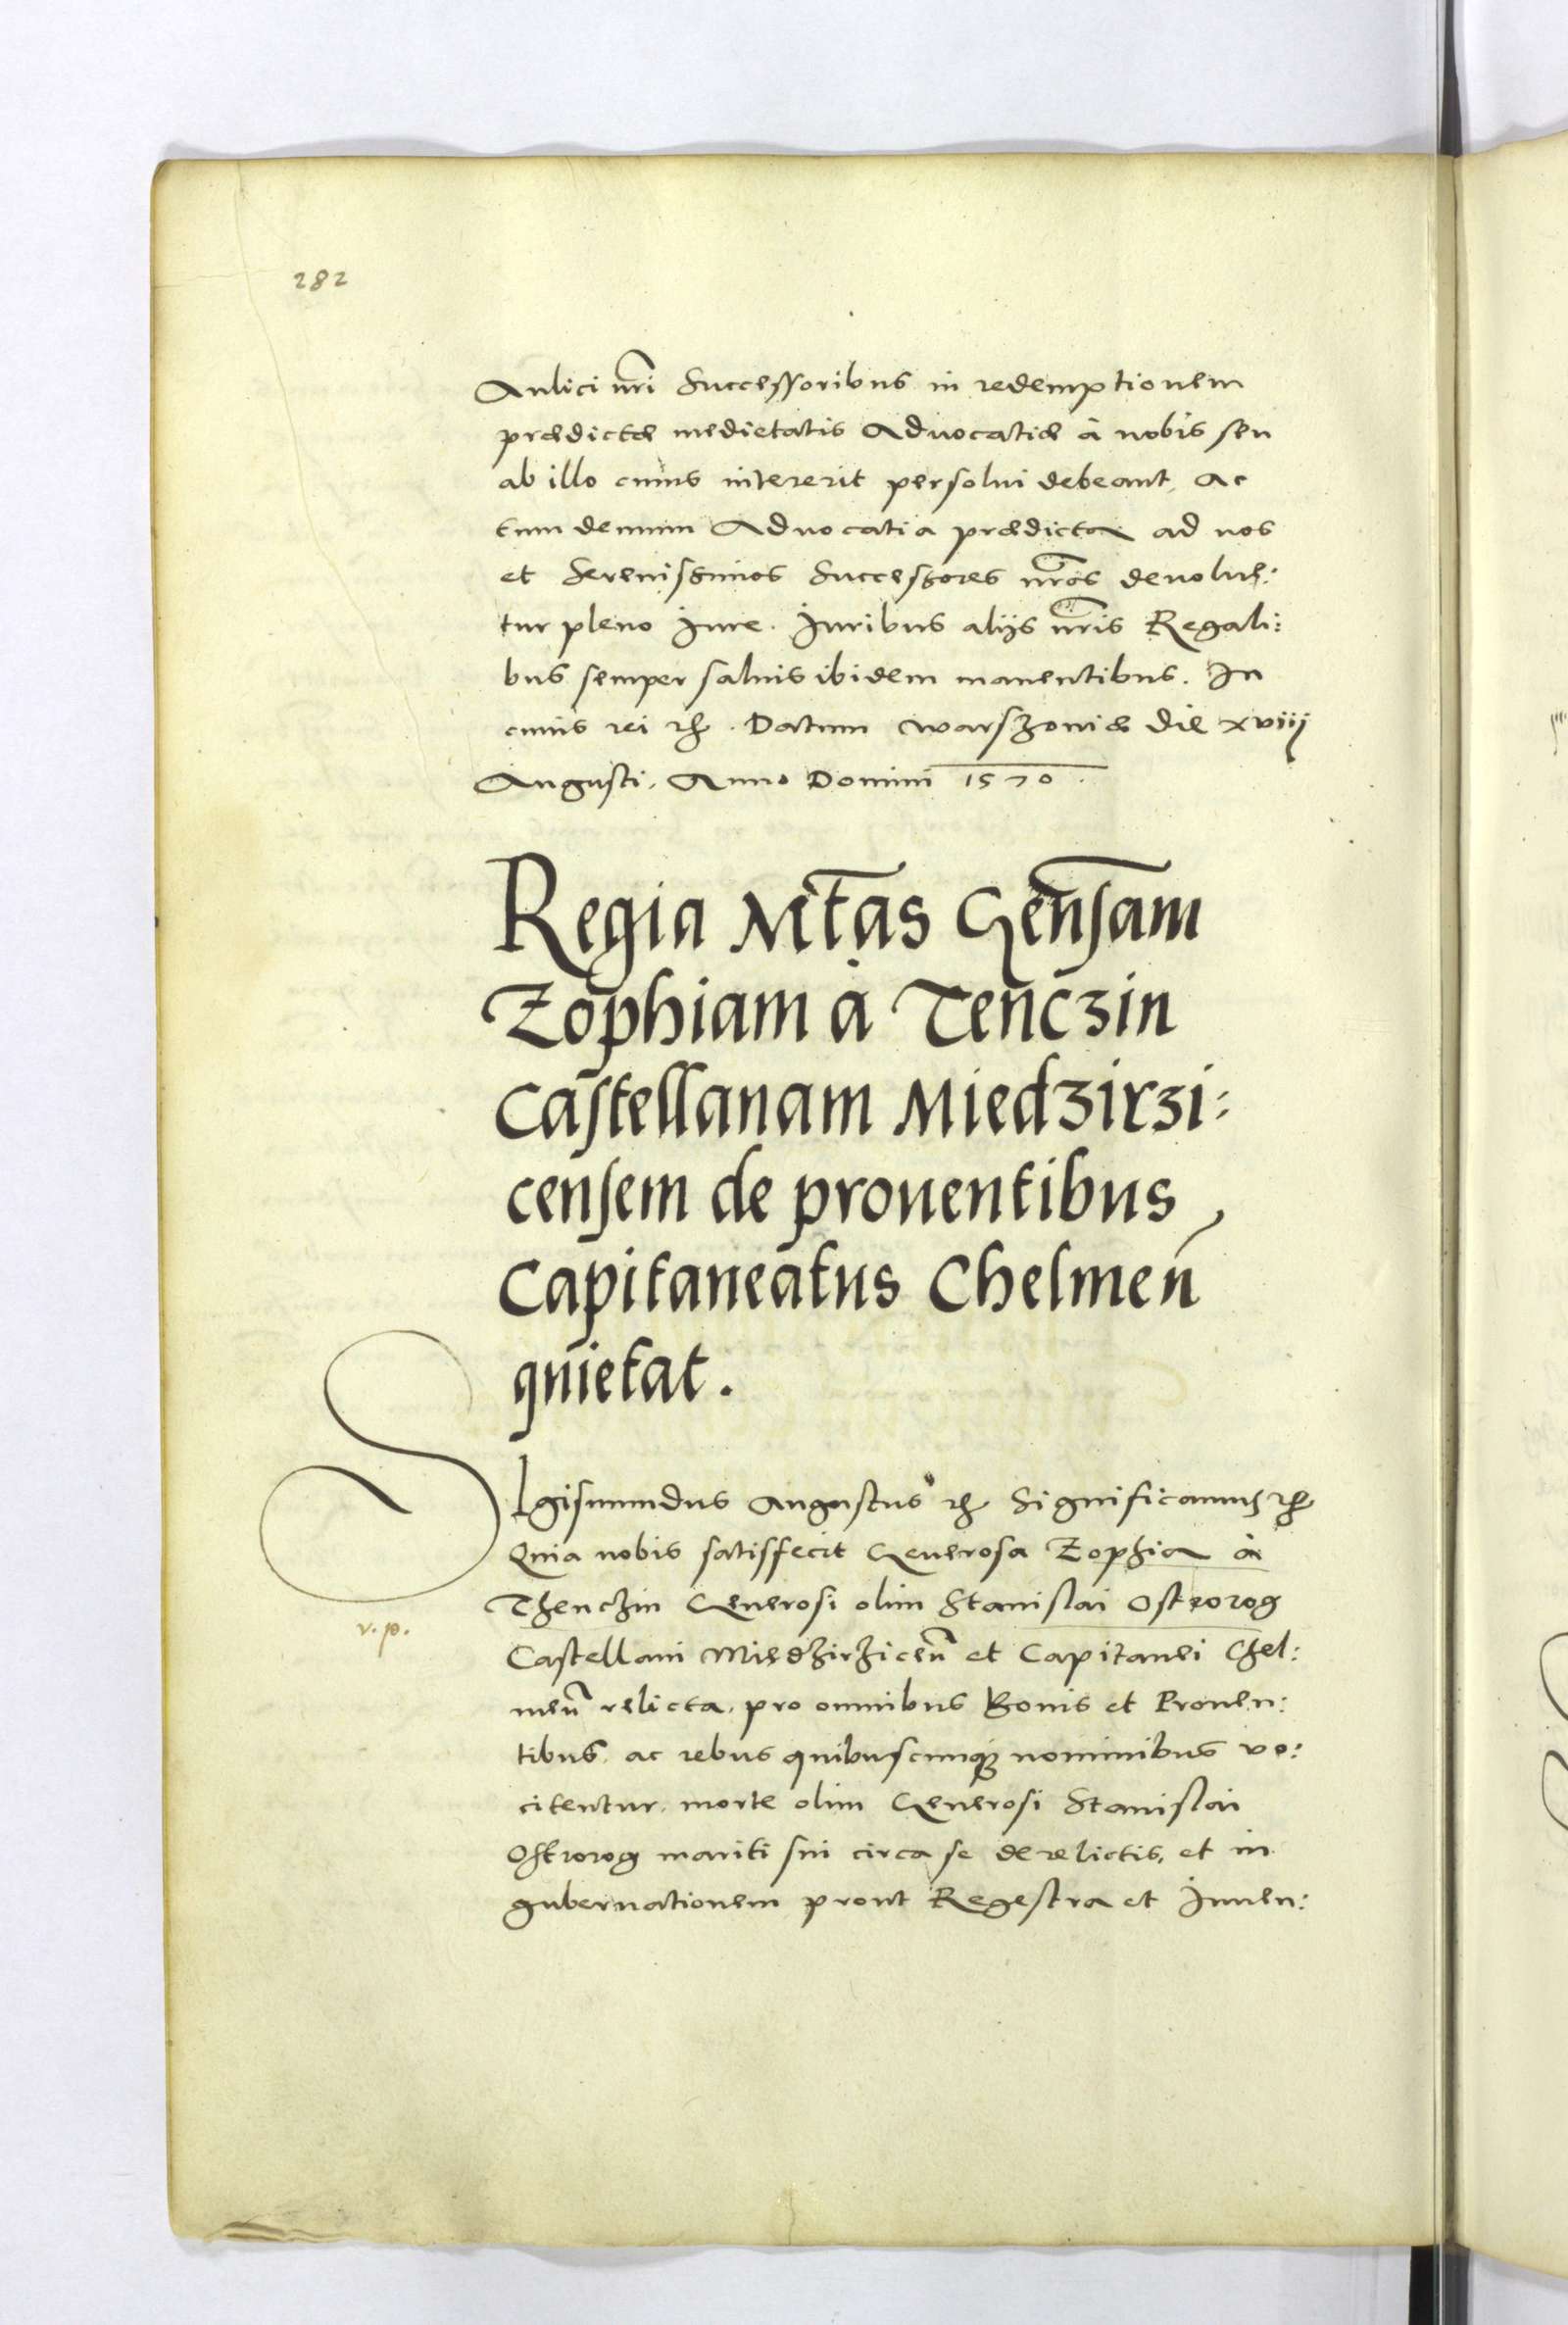 282
Aulici nr̃i Successoribus in redemptionem
prædictæ medietatis Aduocatiæ à nobis seu
ab illo cuius intererit persolui debeant, Ac
tum demum Aduocatia prædicta ad nos
et Serenissimos Successores nr̃os deuolue:
tur pleno Iure. Iuribus alijs nr̃is Regali:
bus semper saluis ibidem manentibus. In
cuius rei etc. Datum Warszoviæ die xviij
Augusti. Anno Domini 1570.
Regia Mt̃as Geñsam
Zophiam à Tenczin
Castellanam Miedzirzi:
censem de prouentibus
Capitaneatus Chelmeñ
quietat.
SIgismundus Augustus etc. Significamus etc.
Quia nobis satisfecit Generosa Zophia à
Thenczin Generosi olim Stanislai Ostrorog
Castellani Miedzirziceñ et Capitanei Chel:
meñ relicta, pro omnibus Bonis et Prouen:
tibus, ac rebus quibuscunq; nominibus vo:
citentur, morte olim Generosi Stanislai
Ostrorog mariti sui circa se derelictis, et in
gubernationem prout Regestra et Inuen:
v. p.